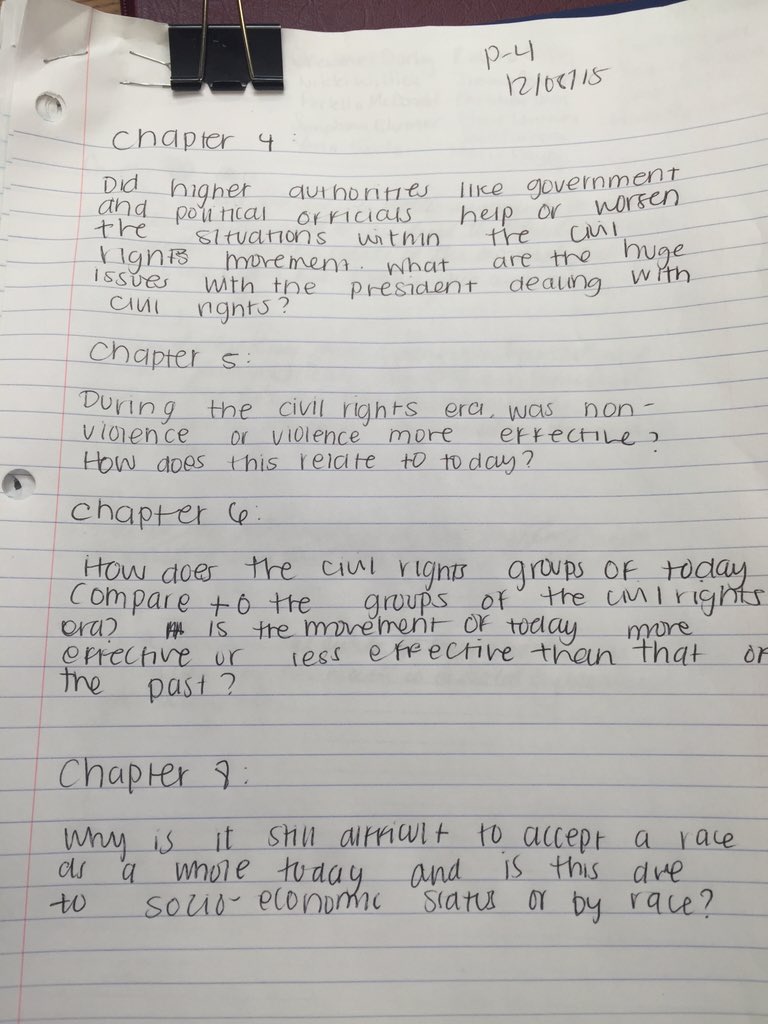 P-4
12/08/15
Chapter 4:
Did higher authorities like government
and political officials help or worsen
the situations within the civil
rights movement. What are the huge
issues with the president dealing with
civil rights?
Chapter 5:
During the civil rights era, was non-
violence or violence more effective?
How does this relate to today?
Chapter 6:
How does the civil rights groups of today
compare to the groups of the civil rights
era? is the movement of today more
effective or less effective than that of
the past?
Chapter 7:
Why is it still difficult to accept a race
as a whole today and is this due
to socio-economic status or by race?